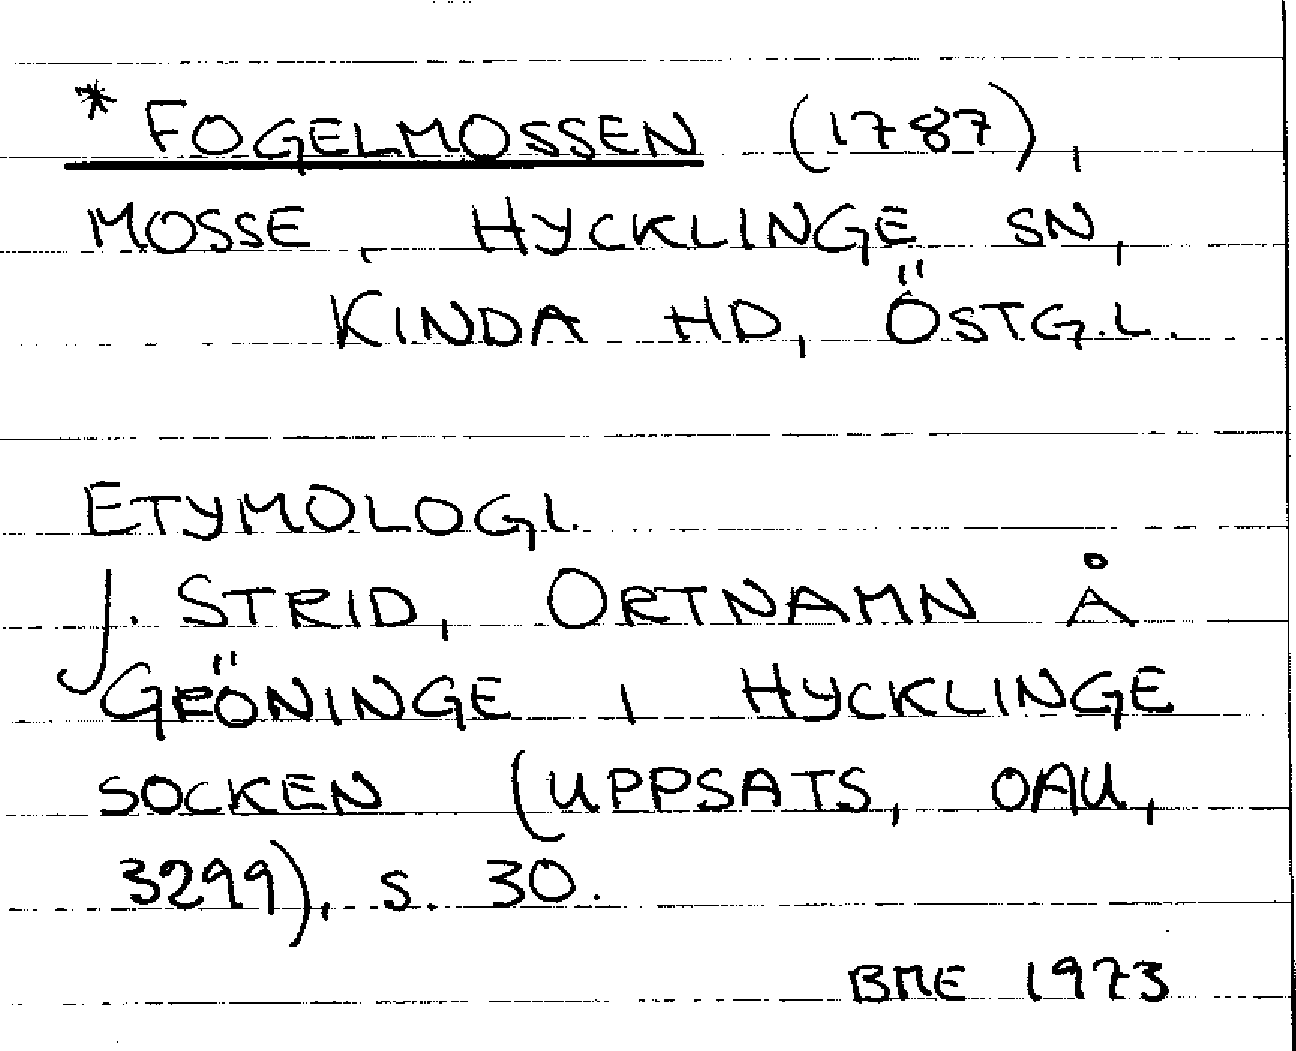 * FOGELMOSSEN (1787),
MOSSE, HYCKLINGE SN,
KINDA HD, ÖSTG.L.
ETYMOLOGI.
J. STRID, ORTNAMN Å
GRÖNINGE I HYCKLINGE
SOCKEN (UPPSATS, OAU,
3299), S. 30.
BME 1973